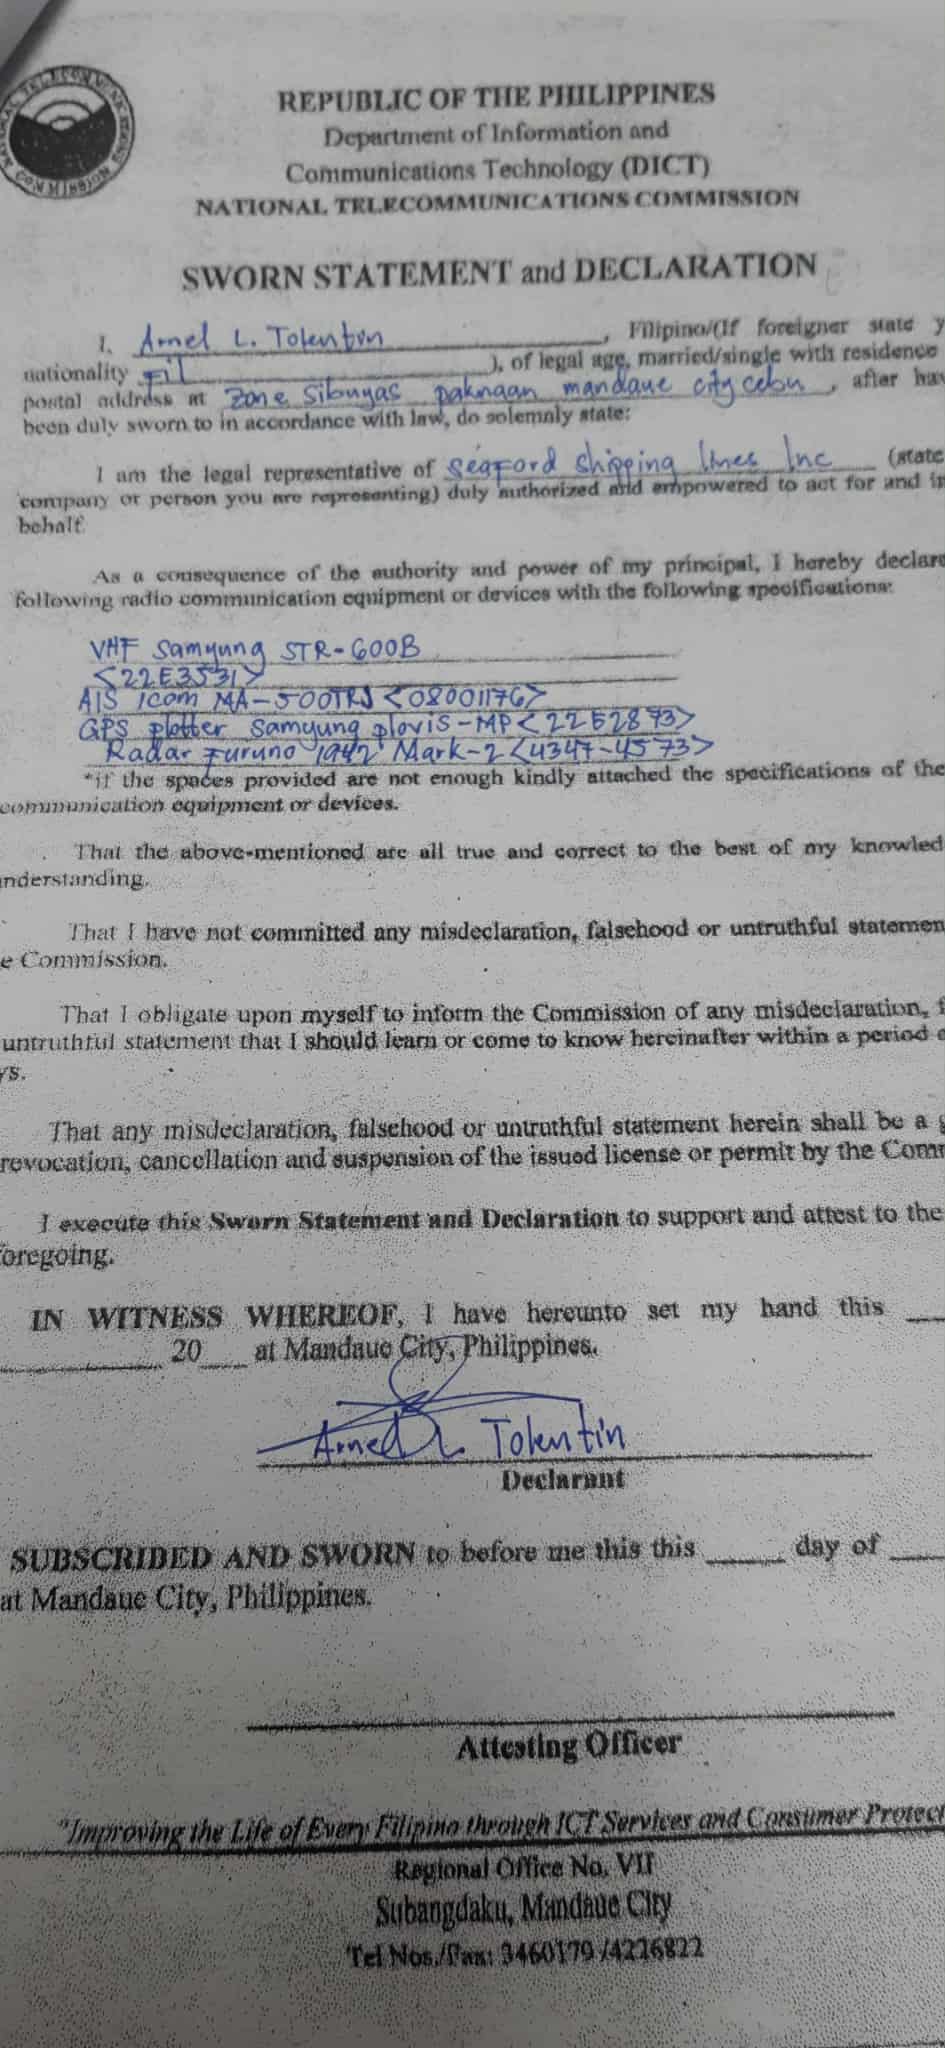 REPUBLIC OF THE PHILIPPINES
Department of Information and
Communications Technology (DICT)
NATIONAL TELECOMMUNICATIONS COMMISSION
SWORN STATEMENT and DECLARATION
I, Arnel L. Tolentin, Filipino/(If foreigner state y
nationality Fil), of legal age, married/single with residence
postal address at Zone Sibuyas paknaan mandaue city cebu, after hav
been duly sworn to in accordance with law, do solemnly state:
I am the legal representative of Seaford Shipping Lines Inc (state
company or person you are representing) duly authorized and empowered to act for and in
behalf.
As a consequence of the authority and power of my principal, I hereby declare
following radio communication equipment or devices with the following specifications:
VHF Samyung STR-600B
<22E3531>
AIS Icom MA-500TRJ <08001176>
GPS plotter Samyung plovis-MP <22E2873>
Radar Furuno 1942 Mark-2 <4347-4573>
*if the spaces provided are not enough kindly attached the specifications of the
communication equipment or devices.
That the above-mentioned are all true and correct to the best of my knowled
nderstanding.
That I have not committed any misdeclaration, falsehood or untruthful statemen
e Commission.
That I obligate upon myself to inform the Commission of any misdeclaration, f
untruthful statement that I should learn or come to know hereinafter within a period o
ys.
That any misdeclaration, falsehood or untruthful statement herein shall be a g
revocation, cancellation and suspension of the issued license or permit by the Comm
I execute this Sworn Statement and Declaration to support and attest to the
foregoing.
IN WITNESS WHEREOF, I have hereunto set my hand this
20 at Mandaue City, Philippines.
Arnel L. Tolentin
Declarant
SUBSCRIBED AND SWORN to before me this this ____ day of
at Mandaue City, Philippines.
Attesting Officer
"Improving the Life of Every Filipino through ICT Services and Consumer Protect
Regional Office No. VII
Subangdaku, Mandaue City
Tel Nos./Fax: 3460179 /4226822